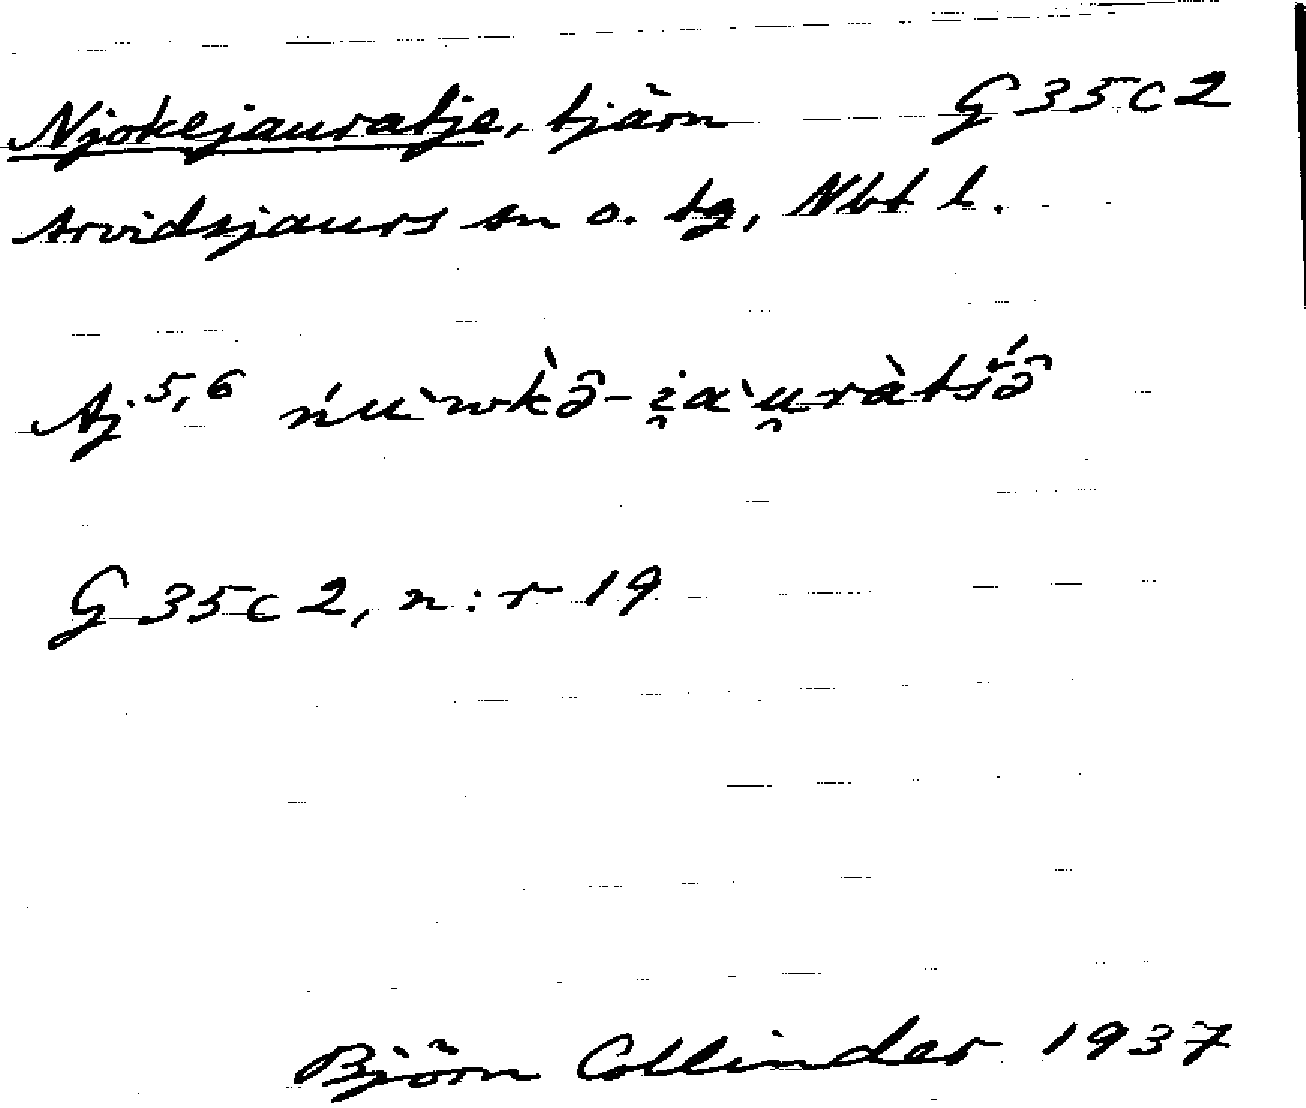 Njokejauratje, tjärn G 35 c 2
Arvidsjaurs sn o. tg, Nbt l.
Aj 5,6 ńu̇̀wk̀ə̂-i̯a̔u̯ràtś́ə̂
G 35 c 2, n:r 19
Björn Collinder 1937